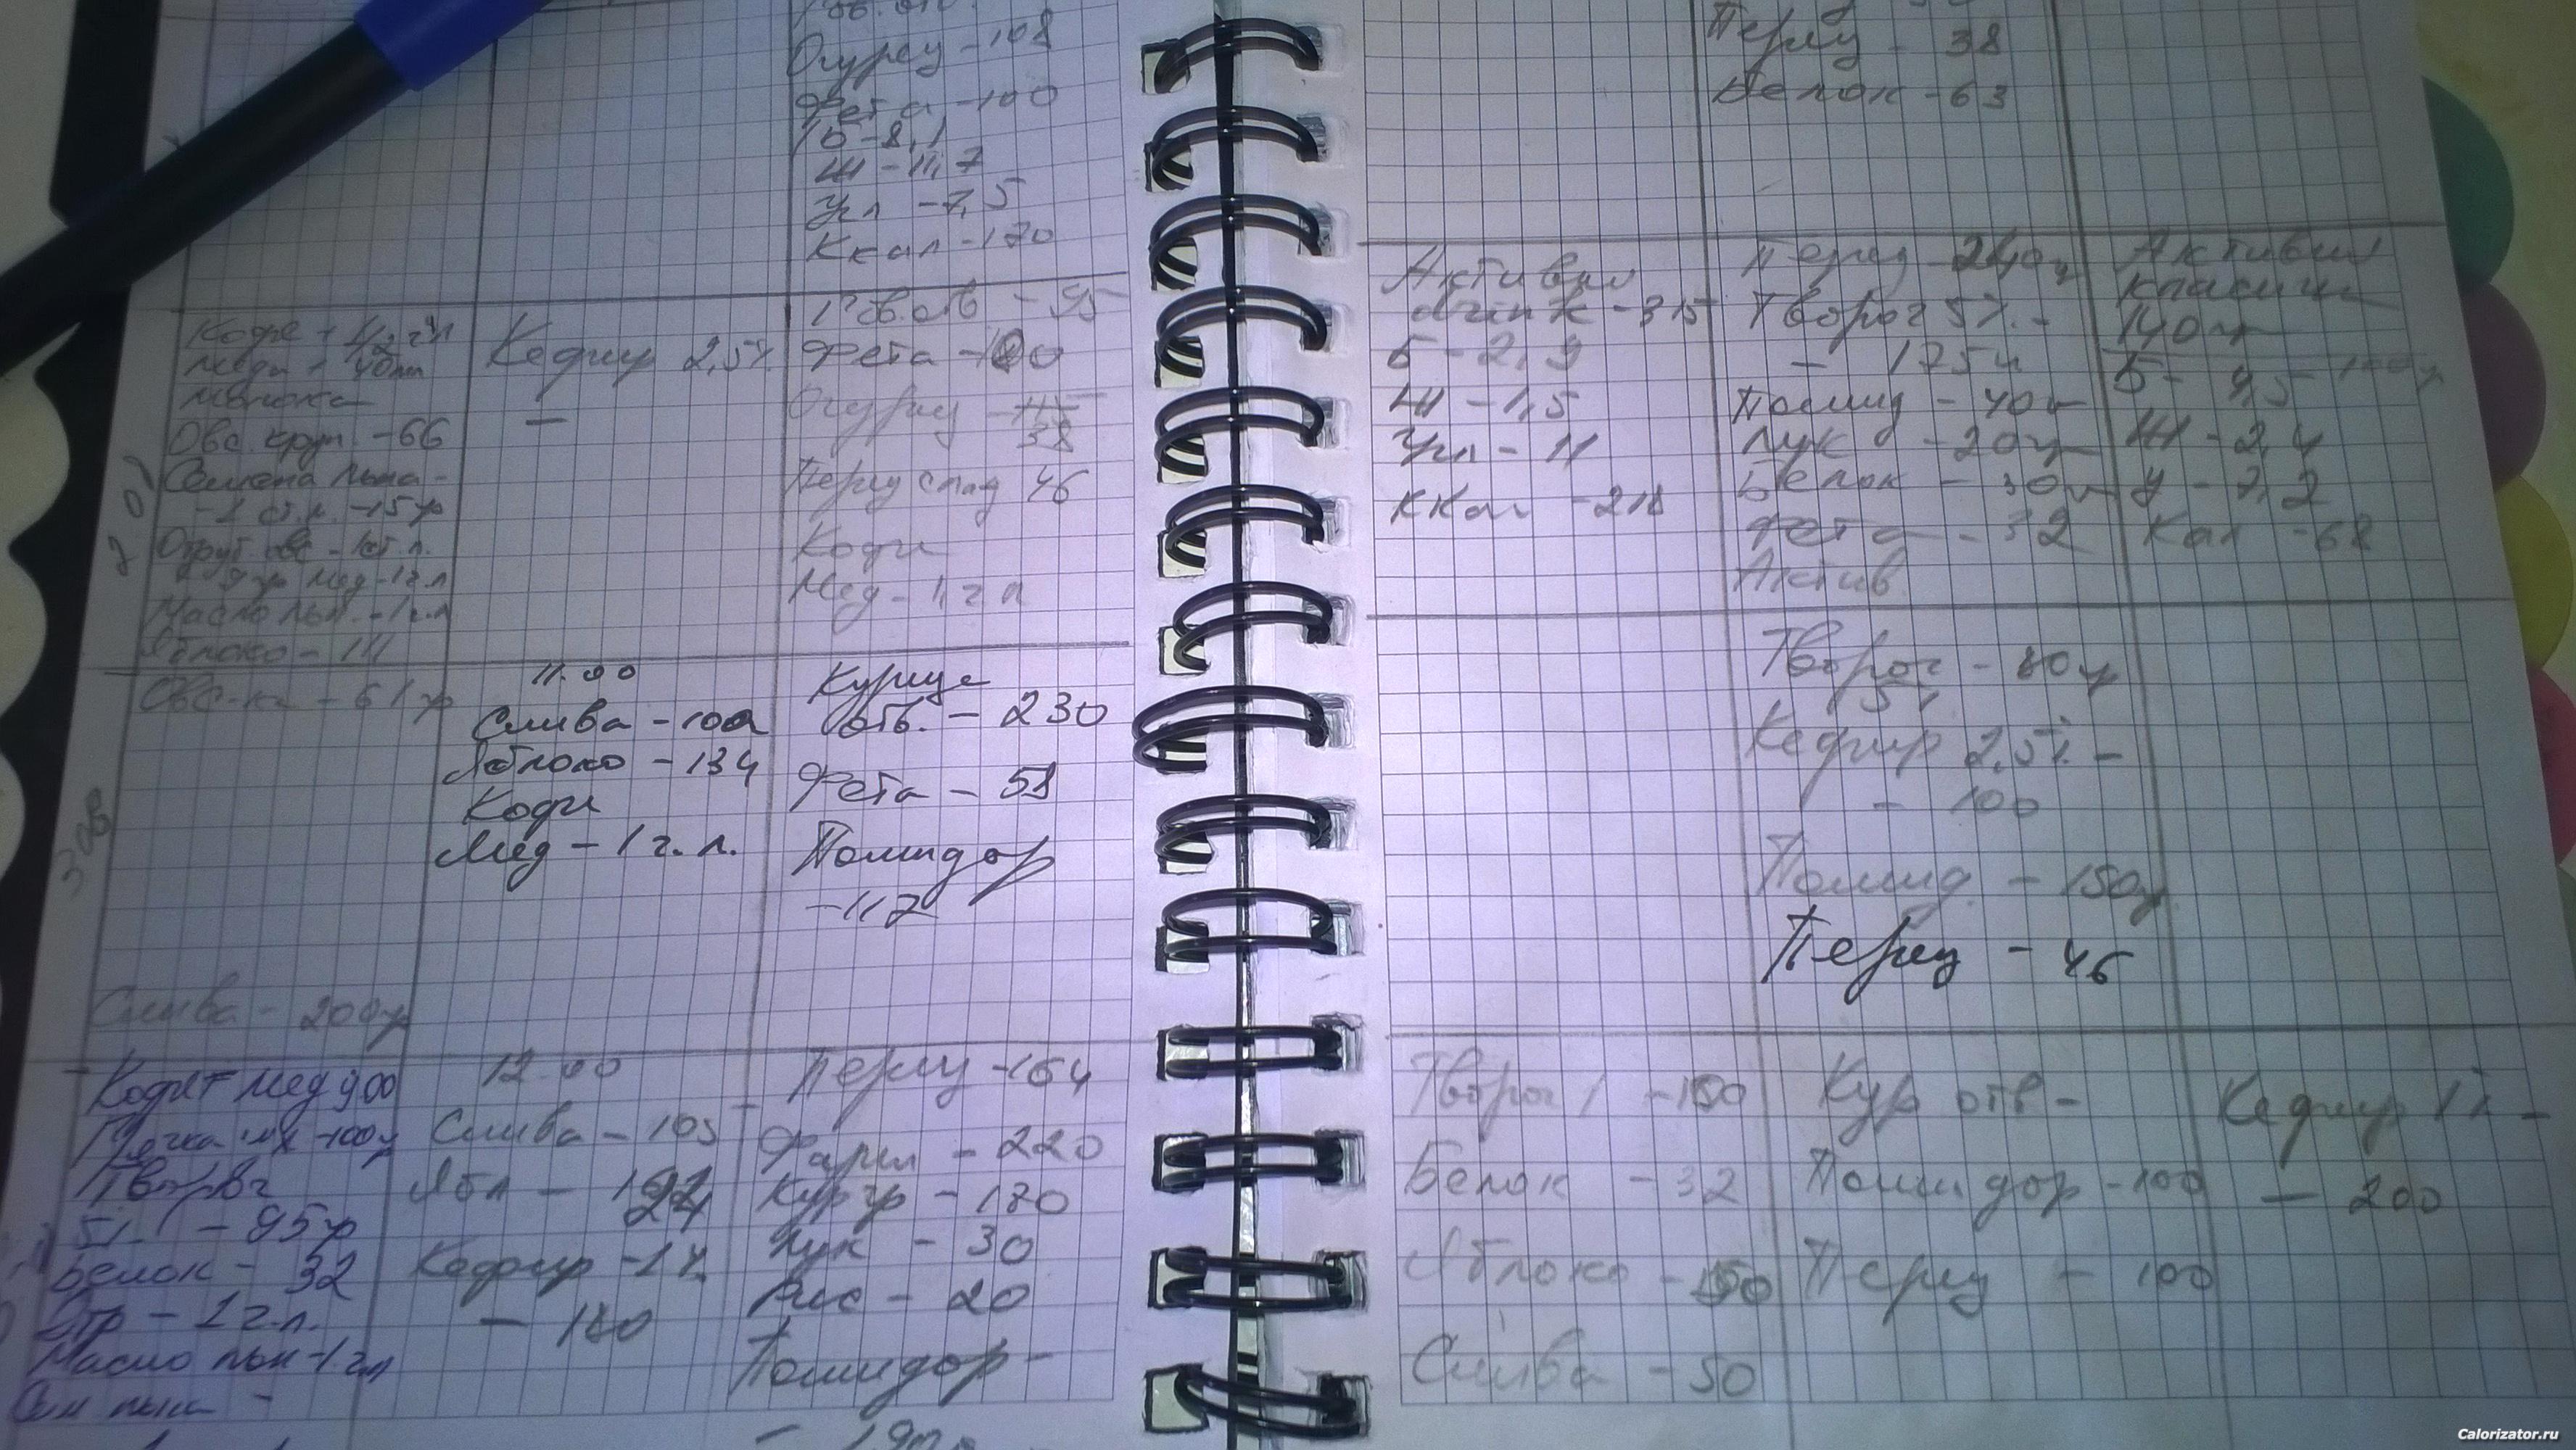 Огурец - 108
Фета - 100
Б - 8,1
Ж - 11,7
Угл - 7,5
Ккал - 170
Кофе + 1/2 ч л
меда + 40мл
молока
Овс. круп. - 66
Семена льна -
- 1 ст.л. - 15 гр
Отруб. овс - 1ст.л.
9 гр мед - 1 ч.л
Масло льн. - 1 ч.л
Яблоко - 111
Кефир 2,5%
—
Гов. отв - 95
Фета - 100
Огурец
38
Перец слад 46
Кофе
Мед - 1 ч л
Овс-ка - 61 гр
Слива - 200гр
11.00
Слива - 100
Яблоко - 134
Кофе
Мед - 1 ч. л.
Курица
отв. - 230
Фета - 58
Помидор
- 117
Кофе + мед 900
- 100г
Творог
5% - 95гр
Белок - 32
Отр - 1 ч.л.
Масло льн - 1 чл
Сем льна -
12.00
Слива - 105
Ябл -
Кефир - 1%
- 140
Перец - 164
Фарш - 220
Кур гр - 180
Лук - 30
Рис - 20
Помидор -
Перец - 38
Белок - 63
Активиа
- 315
Б - 2,9
Ж - 1,5
Угл - 11
Ккал - 218
Перец - 240г
Творог 5% -
- 175г
Помид - 40г
Лук - 20гр
Белок - 30г
Фета - 32
Актив
Активиа
класич
140гр
Б - 4,5 100гр
Ж - 2,4
У - 7,2
Кал - 68
Творог - 80гр
5%
Кефир 2,5% -
- 100
Помид - 150г
Перец - 46
Творог
Белок - 32
Яблоко - 150
Слива - 50
Кур отв -
Помидор - 100
Перец - 100
Кефир 1% -
- 200
Calorizator.ru